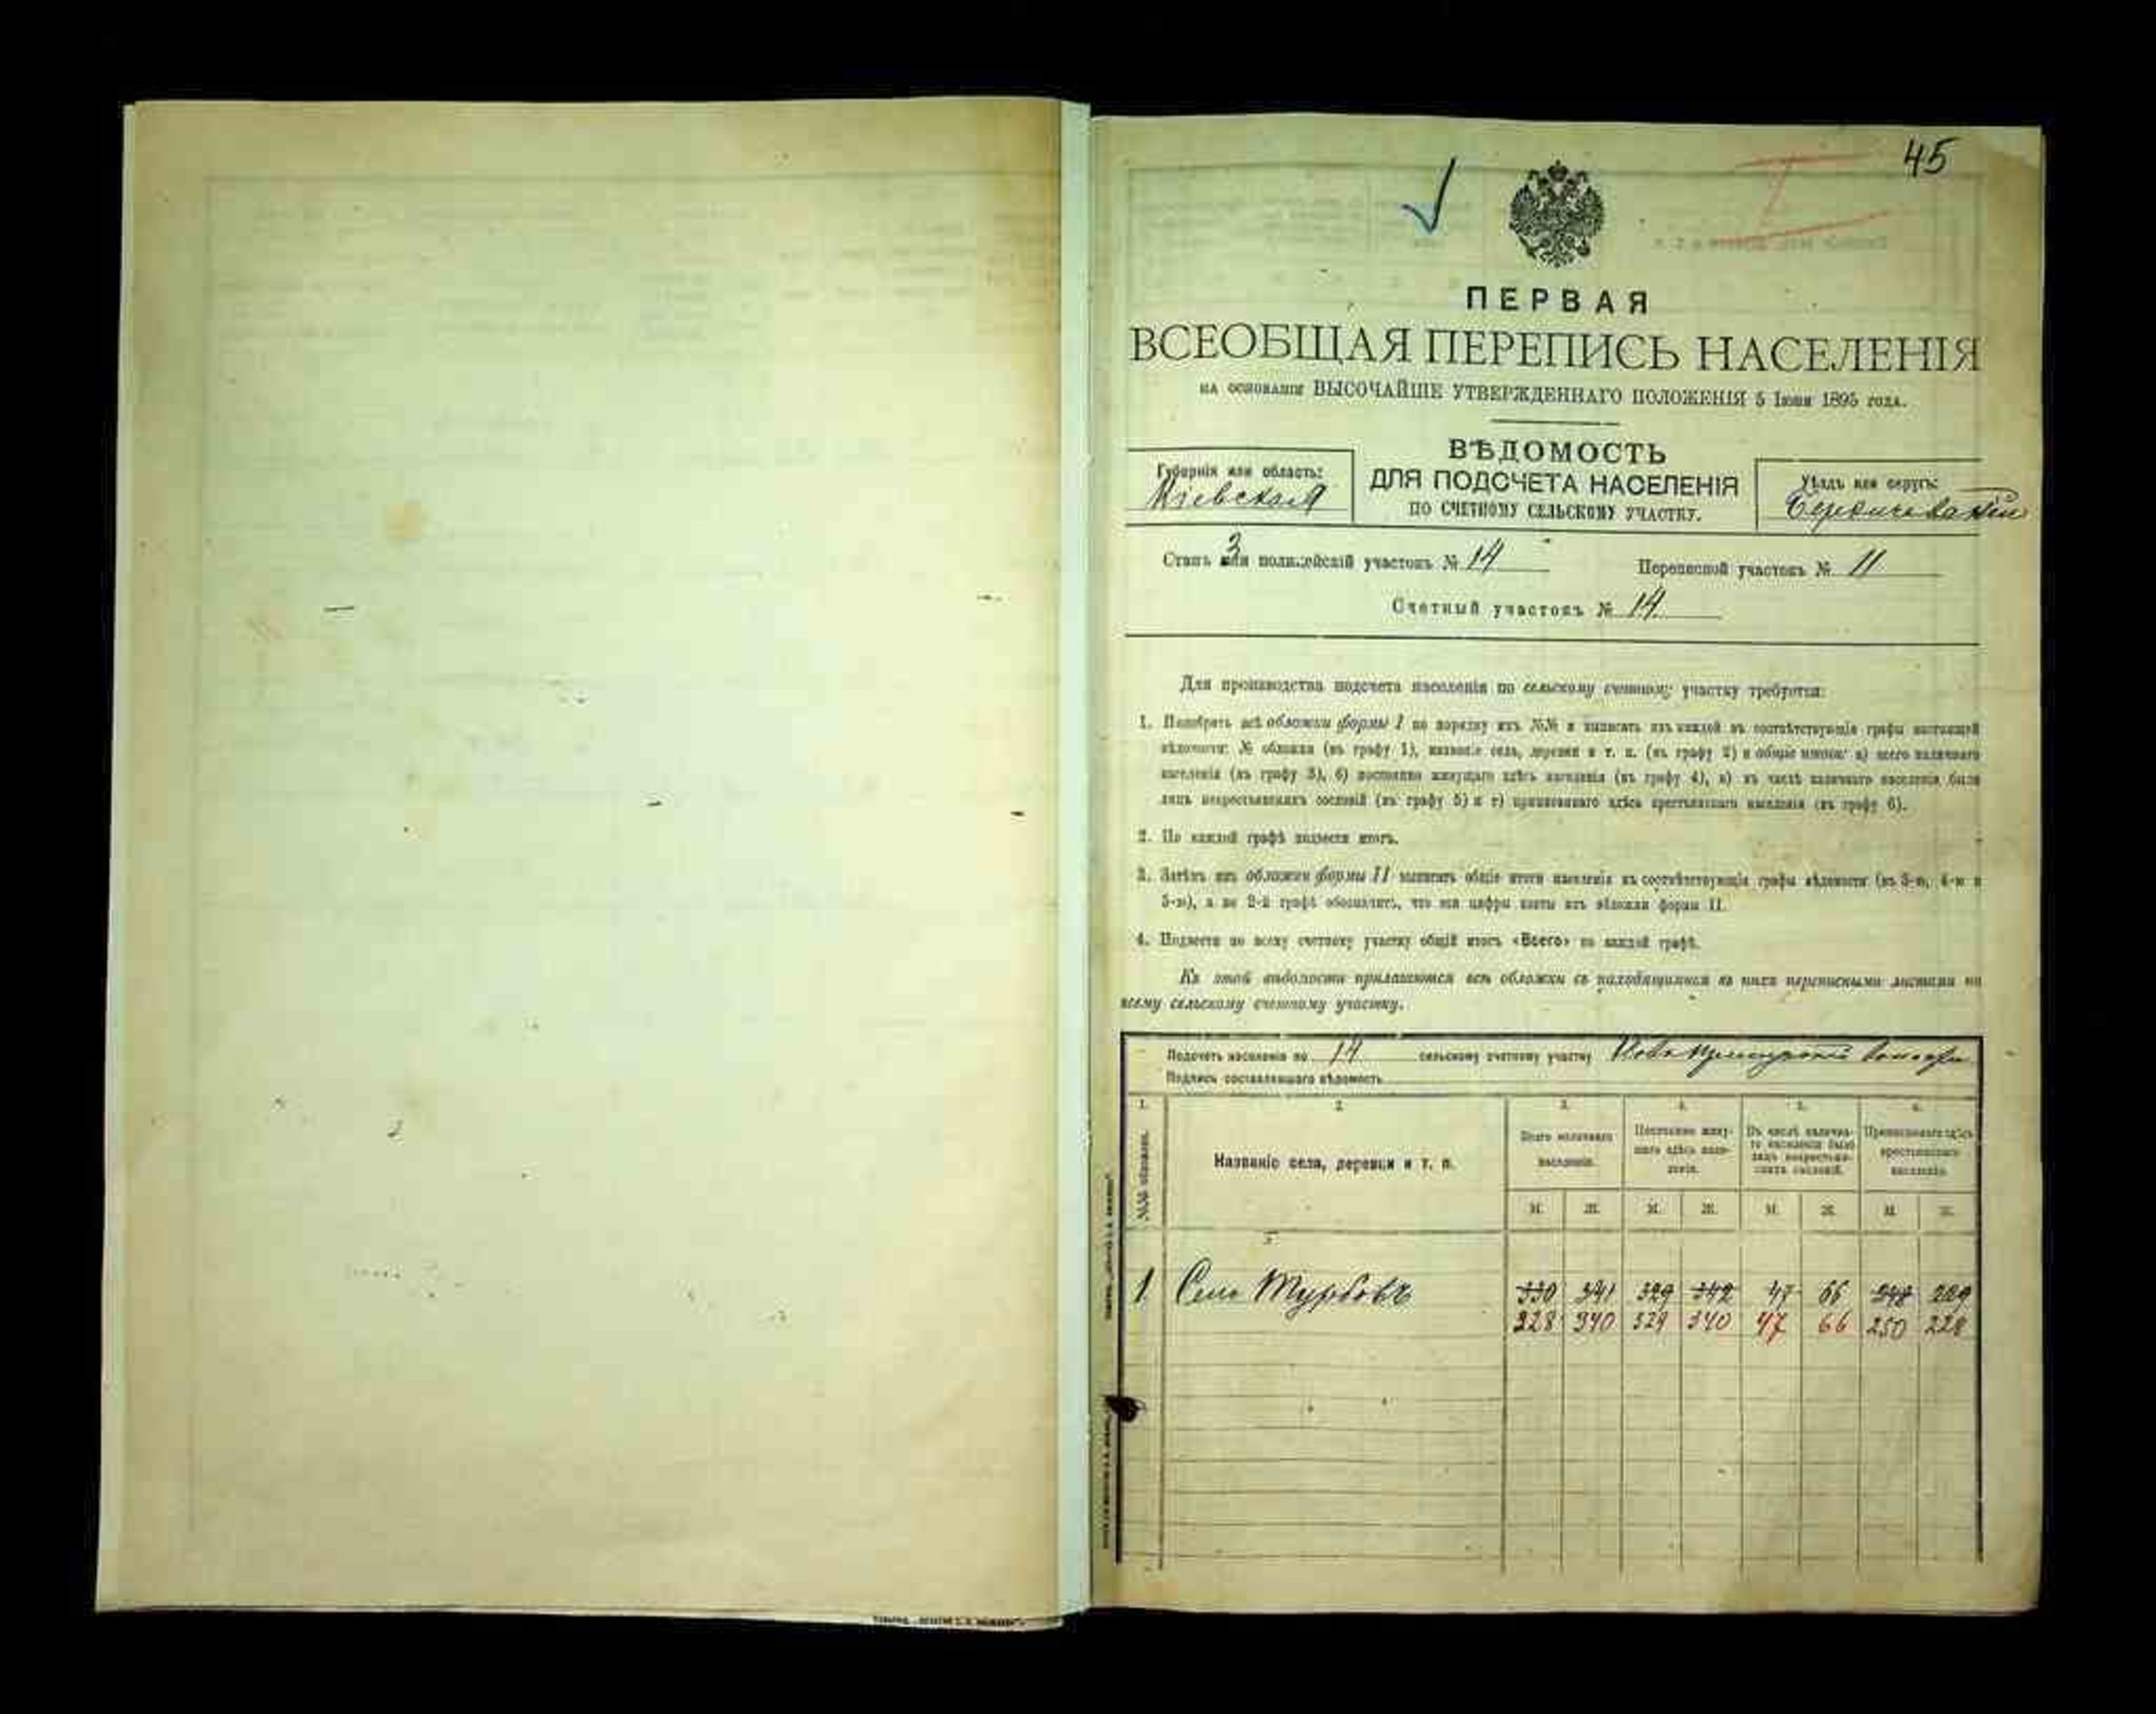 45
ПЕРВАЯ
ВСЕОБЩАЯ ПЕРЕПИСЬ НАСЕЛЕНІЯ
НА ОСНОВАНІИ ВЫСОЧАЙШЕ УТВЕРЖДЕННАГО ПОЛОЖЕНІЯ 5 Іюня 1895 года.
Губернія или область:
Кіевская
ВѢДОМОСТЬ
ДЛЯ ПОДСЧЕТА НАСЕЛЕНІЯ
ПО СЧЕТНОМУ СЕЛЬСКОМУ УЧАСТКУ.
Уѣздъ или округъ:
Бердичевскій
Станъ 3 или полицейскій участокъ № 14
Переписной участокъ № 11
Счетный участокъ № 14
Для производства подсчета населенія по сельскому счетному участку требуется:
1. Подобрать всѣ обложки формы I по порядку ихъ №№ и выписать изъ каждой въ соотвѣтствующія графы настоящей
вѣдомости: № обложки (въ графу 1), названіе села, деревни и т. п. (въ графу 2) и общіе итоги: а) всего наличнаго
населенія (въ графу 3), б) постоянно живущаго здѣсь населенія (въ графу 4), в) въ числѣ наличнаго населенія было
лицъ некрестьянскихъ сословій (въ графу 5) и г) приписаннаго здѣсь крестьянскаго населенія (въ графу 6).
2. По каждой графѣ подвести итогъ.
3. Затѣмъ изъ обложки формы II выписать общіе итоги населенія въ соотвѣтствующія графы вѣдомости (въ 3-ю, 4-ю и
5-ю), а во 2-й графѣ обозначить, что эти цифры взяты изъ обложки формы II.
4. Подвести по всему счетному участку общій итогъ «Всего» по каждой графѣ.
Къ этой вѣдомости прилагаются всѣ обложки съ находящимися въ нихъ переписными листами по
всему сельскому счетному участку.
Подсчетъ населенія по 14 сельскому счетному участку
Подпись составлявшаго вѣдомость
1. 2. 3. 4. 5. 6.
№№ обложекъ.
Названіе села, деревни и т. п.
Всего наличнаго населенія.
Постоянно живущаго здѣсь населенія.
Въ числѣ наличнаго населенія было лицъ некрестьянскихъ сословій.
Приписаннаго здѣсь крестьянскаго населенія.
М. Ж. М. Ж. М. Ж. М. Ж.
1 Село Турбовъ 330 341 329 342 47 66 248 229
328 340 329 340 47 66 250 228